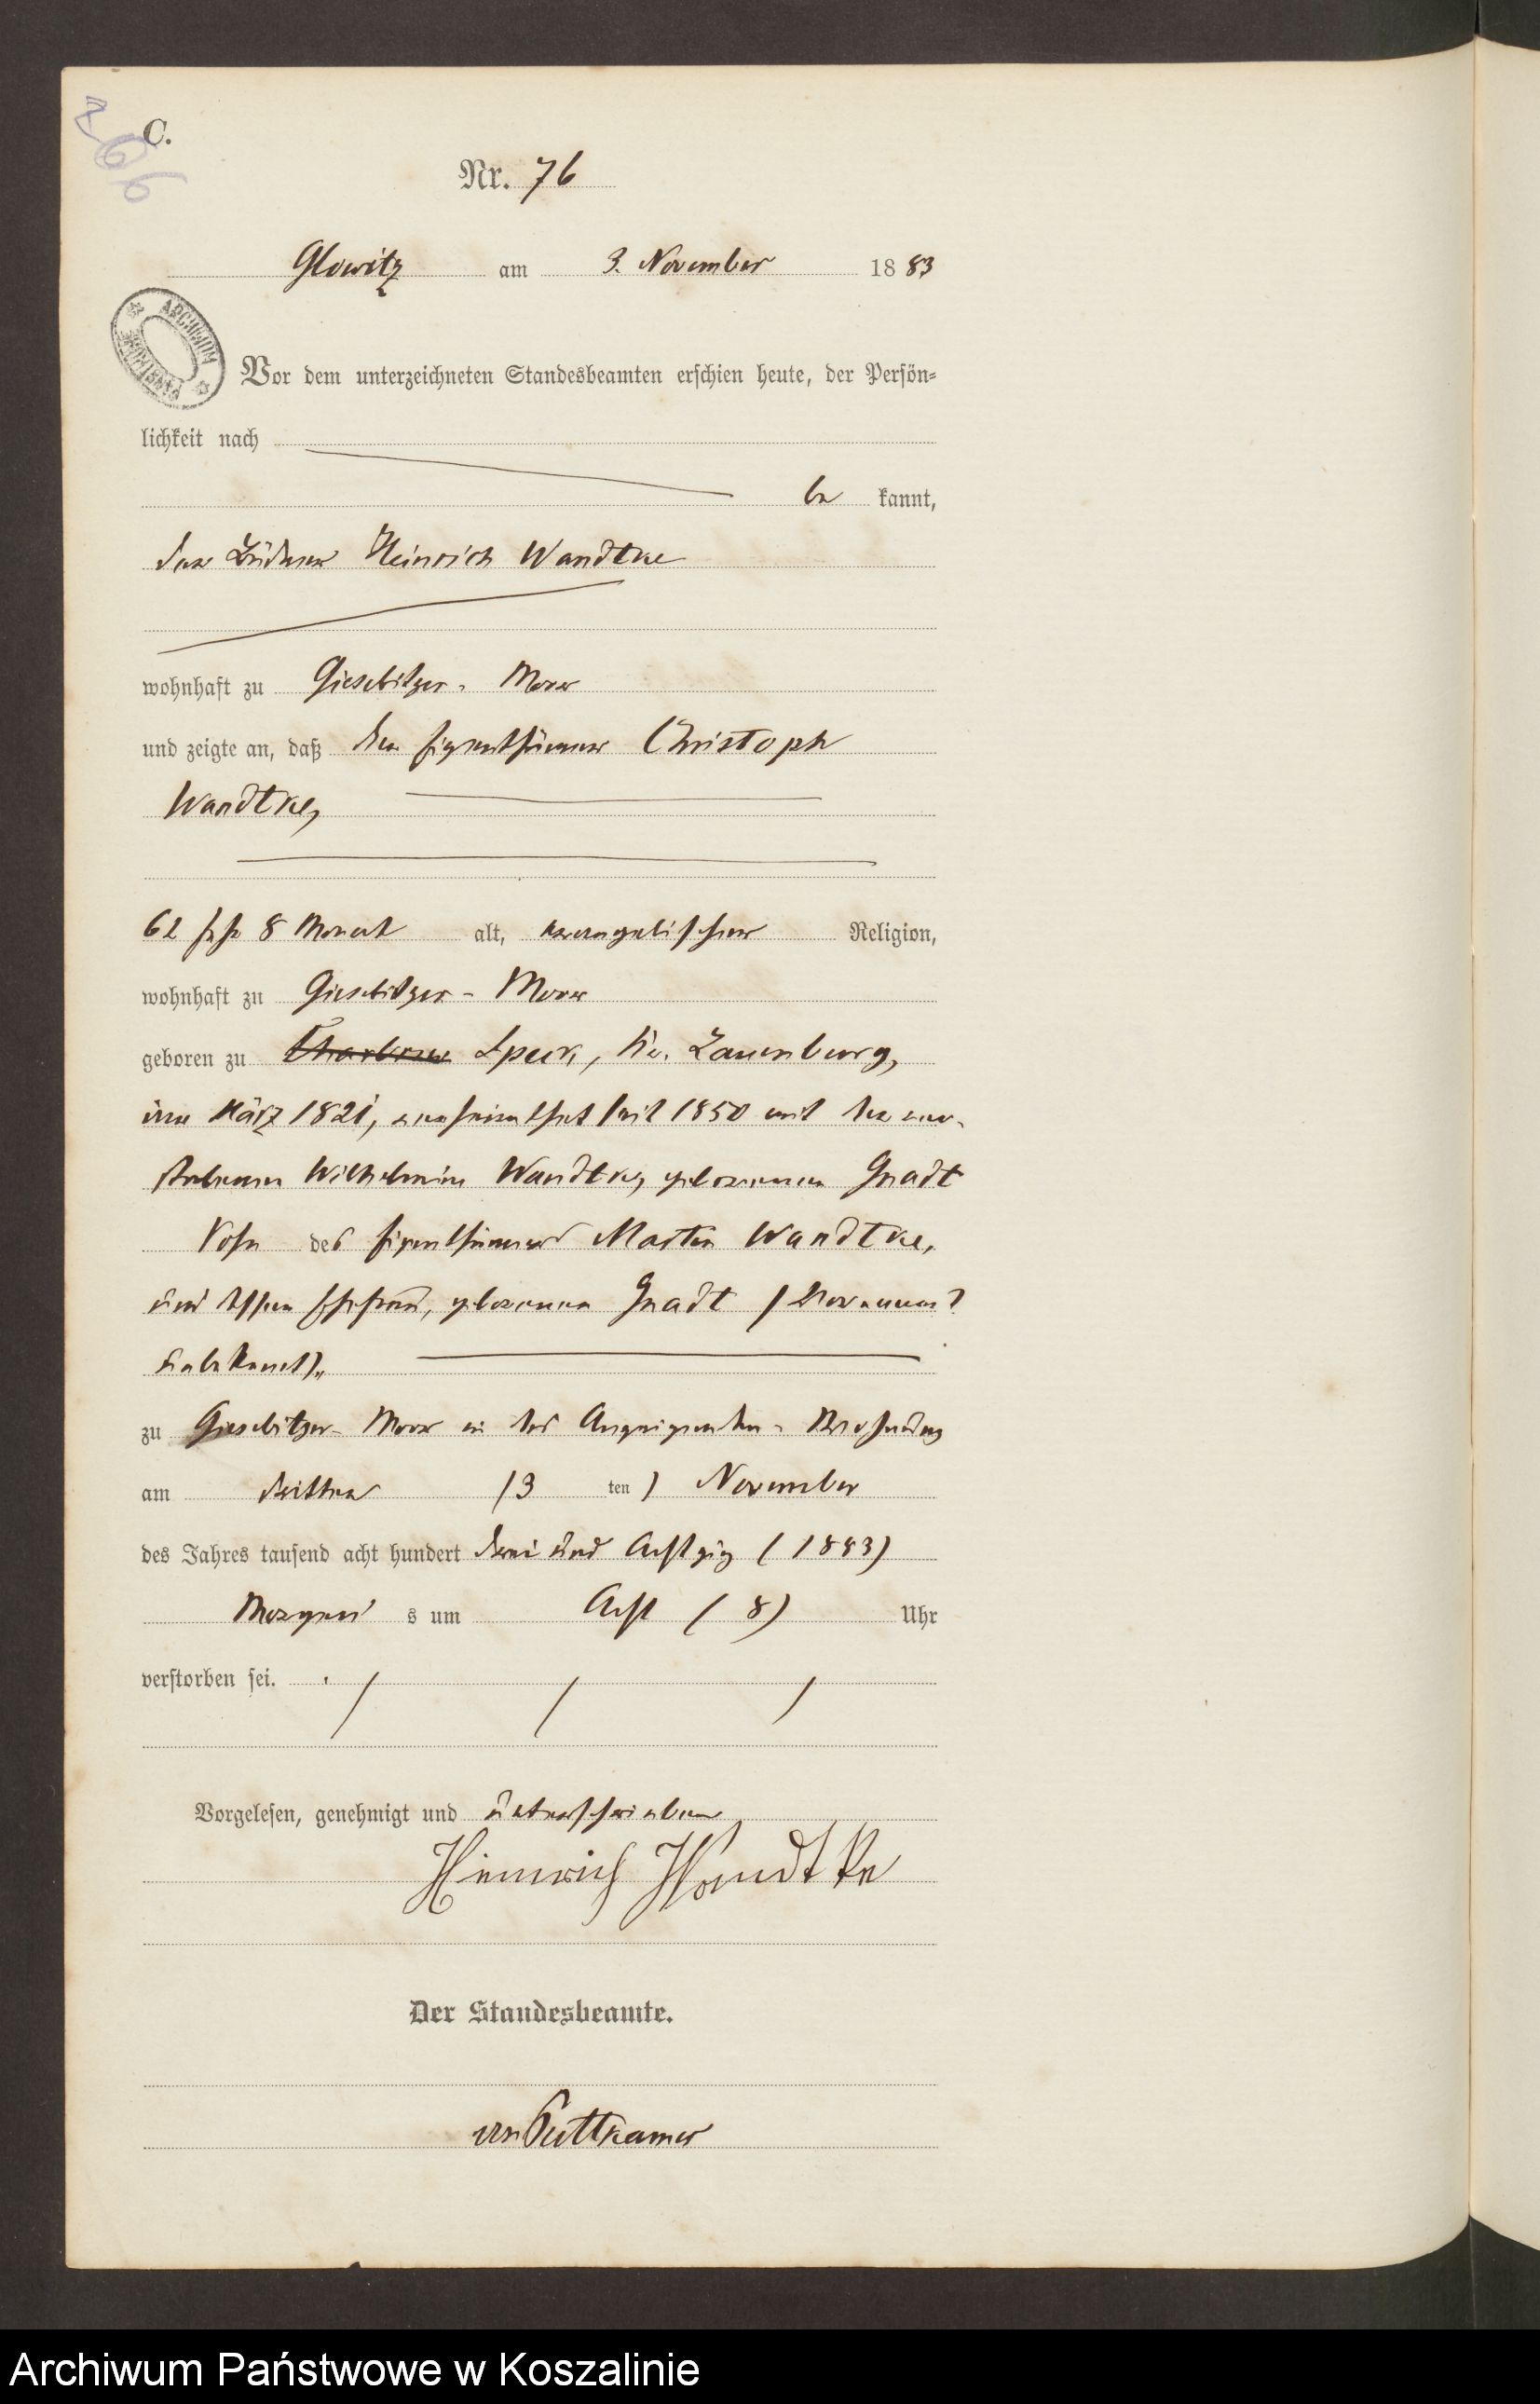 C.
266
Nr. 76
Glowitz am 3. November 1883
ARCHIWUM
Vor dem unterzeichneten Standesbeamten erschien heute, der Persön-
lichkeit nach
be kannt,
der Büdner Heinrich Wandtke
wohnhaft zu Giesebitzer-Moor
und zeigte an, daß der Eigenthümer Christoph
Wandtke,
62 Jahr 8 Monat alt, evangelischer Religion,
wohnhaft zu Giesebitzer-Moor
geboren zu Speck, Kr. Lauenburg,
im März 1821, verheirathet seit 1850 mit der ver-
storbenen Wilhelmine Wandtke, geborenen Gnadt
Sohn des Eigenthümers Martin Wandtke,
und dessen Ehefrau, geborenen Gnadt (Vornamen?
unbekannt).
zu Giesebitzer-Moor in des Behausung
am dritten (3 ten) November
des Jahres tausend acht hundert drei und Achtzig (1883)
Morgen s um Acht (8) Uhr
verstorben sei.
Vorgelesen, genehmigt und unterschrieben
Heinrich Wandtke
Der Standesbeamte.
von Puttkamer
Archiwum Państwowe w Koszalinie